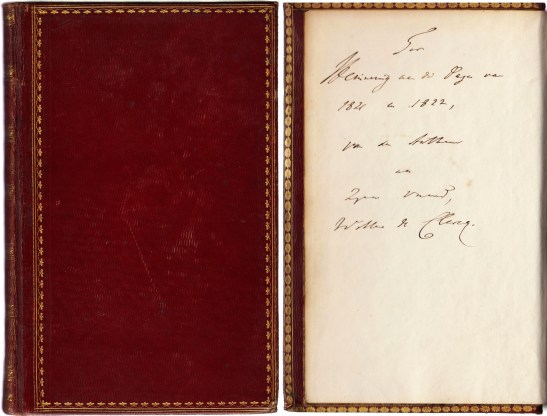 Ter
Herinnering aan de Dagen van
1821 en 1822,
van den
aan
Zijnen vriend,
Willem de Clercq.